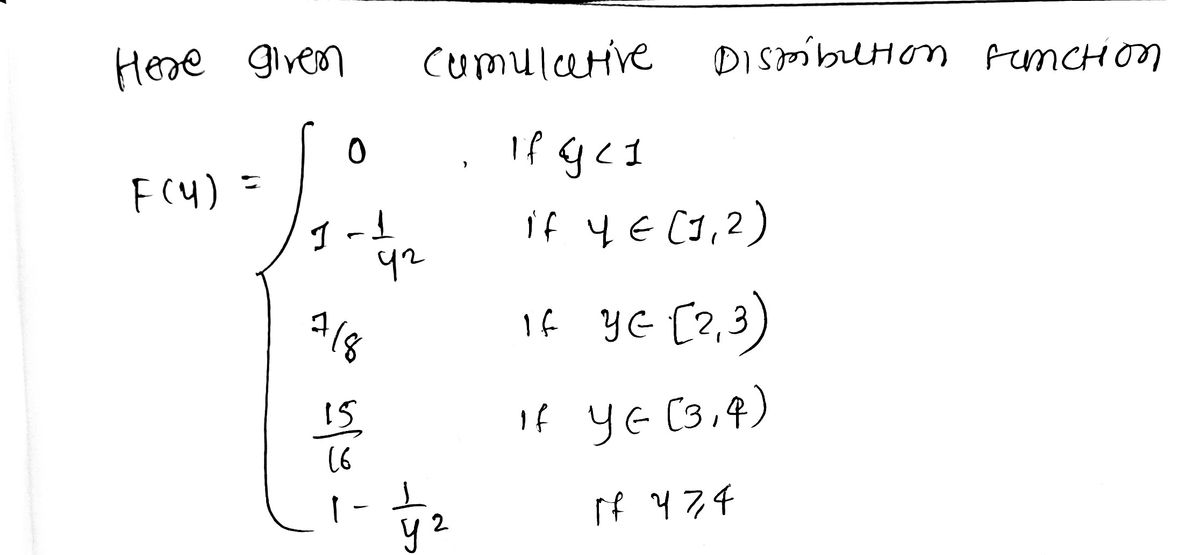 Here given cumulative Distribution Function
F(y) = { 0 , if y < 1
1 - 1/y2 if y ∈ [1,2)
7/8 if y ∈ [2,3)
15/16 if y ∈ [3,4)
1 - 1/y2 if y ≥ 4